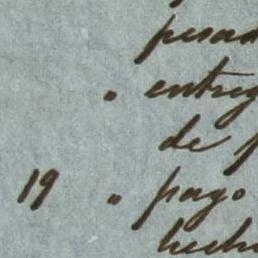 pesad
" entreg
de p
19 " pago
hech